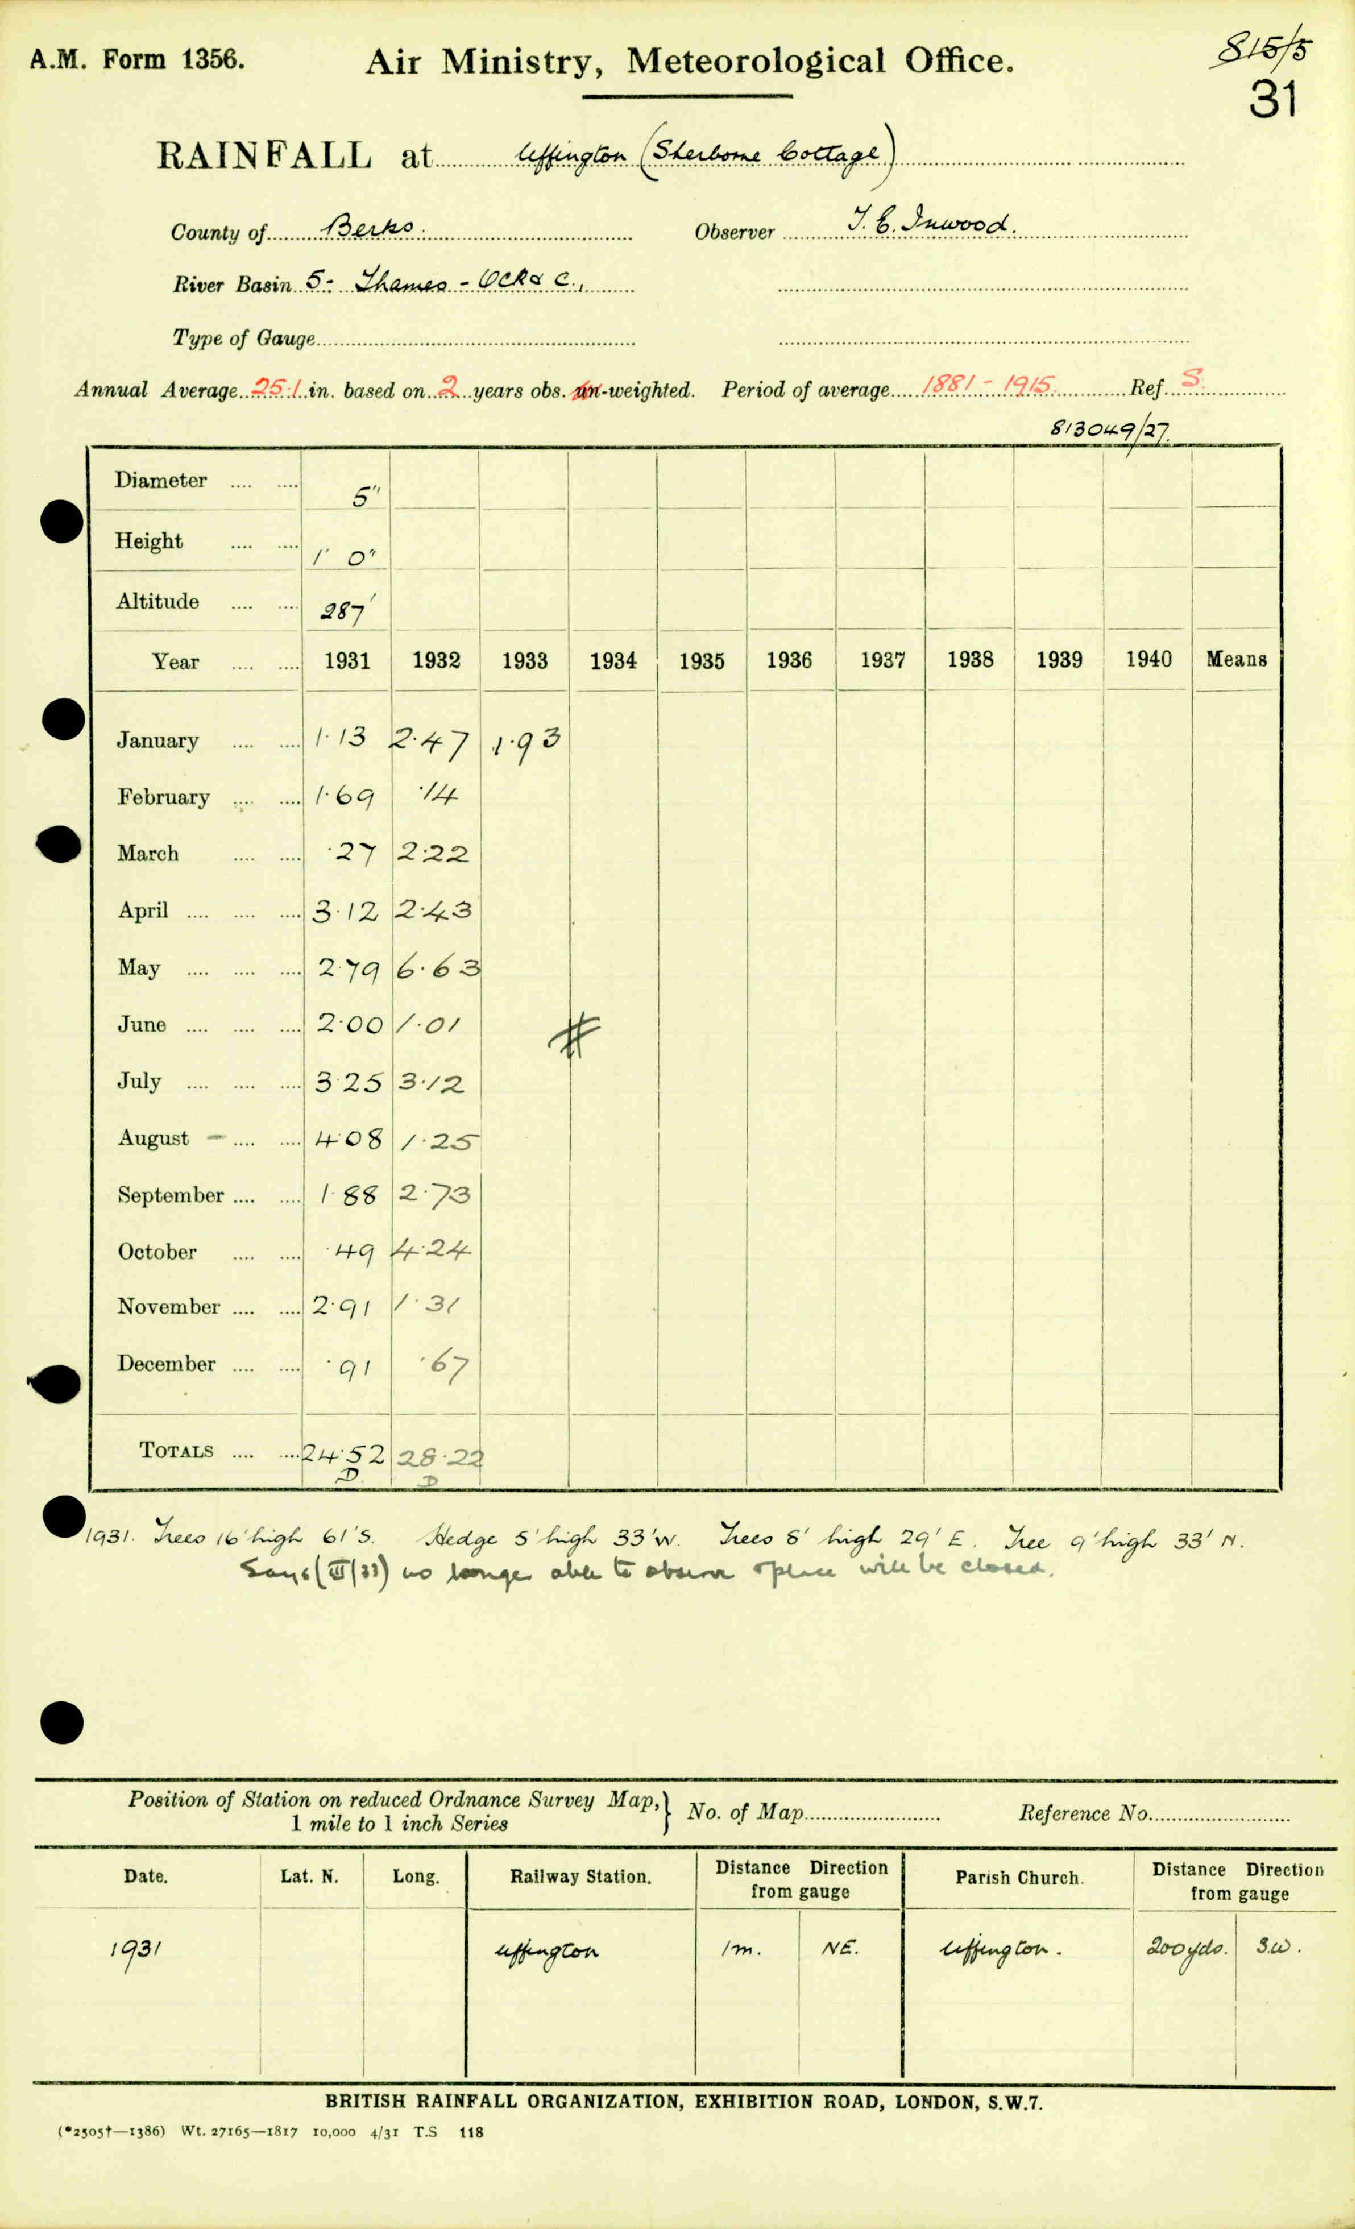 A.M. Form 1356. Air Ministry, Meteorological Office. 815/5
31
RAINFALL at Uffington (Sherborne Cottage)
County of Berks. Observer T. E. Inwood.
River Basin 5- Thames - Ock & C.,
Type of Gauge
Annual Average 25.1 in. based on 2 years obs. un-weighted. Period of average 1881 - 1915 Ref. S.
813049/27.
Diameter 5"
Height 1' 0"
Altitude 287'
Year 1931 1932 1933 1934 1935 1936 1937 1938 1939 1940 Means
January 1.13 2.47 1.93
February 1.69 .14
March .27 2.22
April 3.12 2.43
May 2.79 6.63
June 2.00 1.01 #
July 3.25 3.12
August 4.08 1.25
September 1.88 2.73
October .49 4.24
November 2.91 1.31
December .91 .67
TOTALS 24.52 28.22
D. D
1931. Trees 16' high 61' S. Hedge 5' high 33' W. Trees 8' high 29' E. Tree 9' high 33' N.
Says (III/33) no longer able to observe & place will be closed.
Position of Station on reduced Ordnance Survey Map, } No. of Map Reference No.
1 mile to 1 inch Series
Date. Lat. N. Long. Railway Station. Distance Direction from gauge Parish Church. Distance Direction from gauge
1931 Uffington 1m. NE. Uffington. 200 yds. S.W.
BRITISH RAINFALL ORGANIZATION, EXHIBITION ROAD, LONDON, S.W.7.
(*2505†—1386) Wt. 27165—1817 10,000 4/31 T.S 118